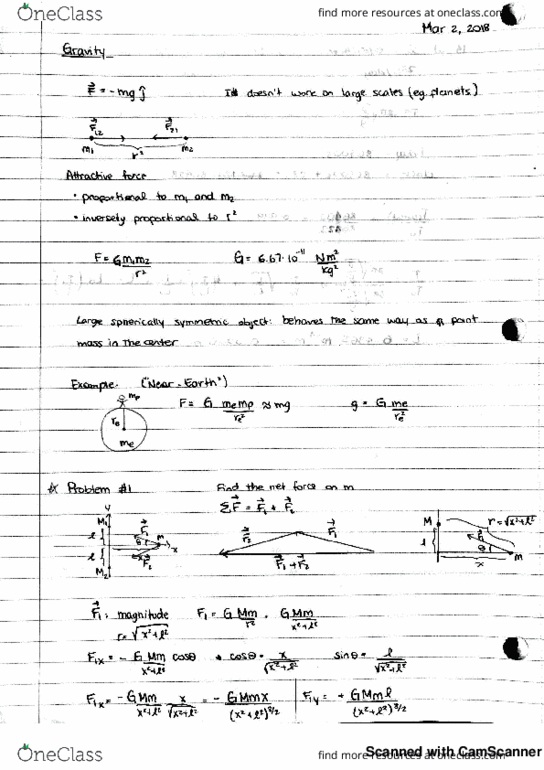 OneClass
find more resources at oneclass.com
Mar 2, 2018
Gravity
F⃗ = -mg ĵ doesn't work on large scales (eg. planets)
F⃗₁₂ F⃗₂₁
m₁ r² m₂
Attractive force
• proportional to m₁ and m₂
• inversely proportional to r²
F = G m₁m₂ / r² G = 6.67·10⁻¹¹ Nm² / kg²
Large spherically symmetric object: behaves the same way as a point
mass in the center
Example. ("Near-Earth")
mp
re
me
F = G memp / re² ≈ mg g = G me / re²
Problem #1 Find the net force on m
ΣF⃗ = F⃗₁ + F⃗₂
y
M₁ F⃗₁
l θ m x
l F⃗₂
M₂
F⃗₂ F⃗₁
F⃗₁+F⃗₂
M r=√x²+l²
l F⃗₁ θ
x m
F⃗₁: magnitude F₁ = G Mm / r² = G Mm / x²+l²
r=√x²+l²
F₁x = - G Mm / x²+l² cosθ cosθ = x / √x²+l² sinθ = l / √x²+l²
F₁x = -G Mm / x²+l² x / √x²+l² = -GMmx / (x²+l²)^3/2 F₁y = + GMml / (x²+l²)^3/2
OneClass
find more resources at oneclass.com
Scanned with CamScanner